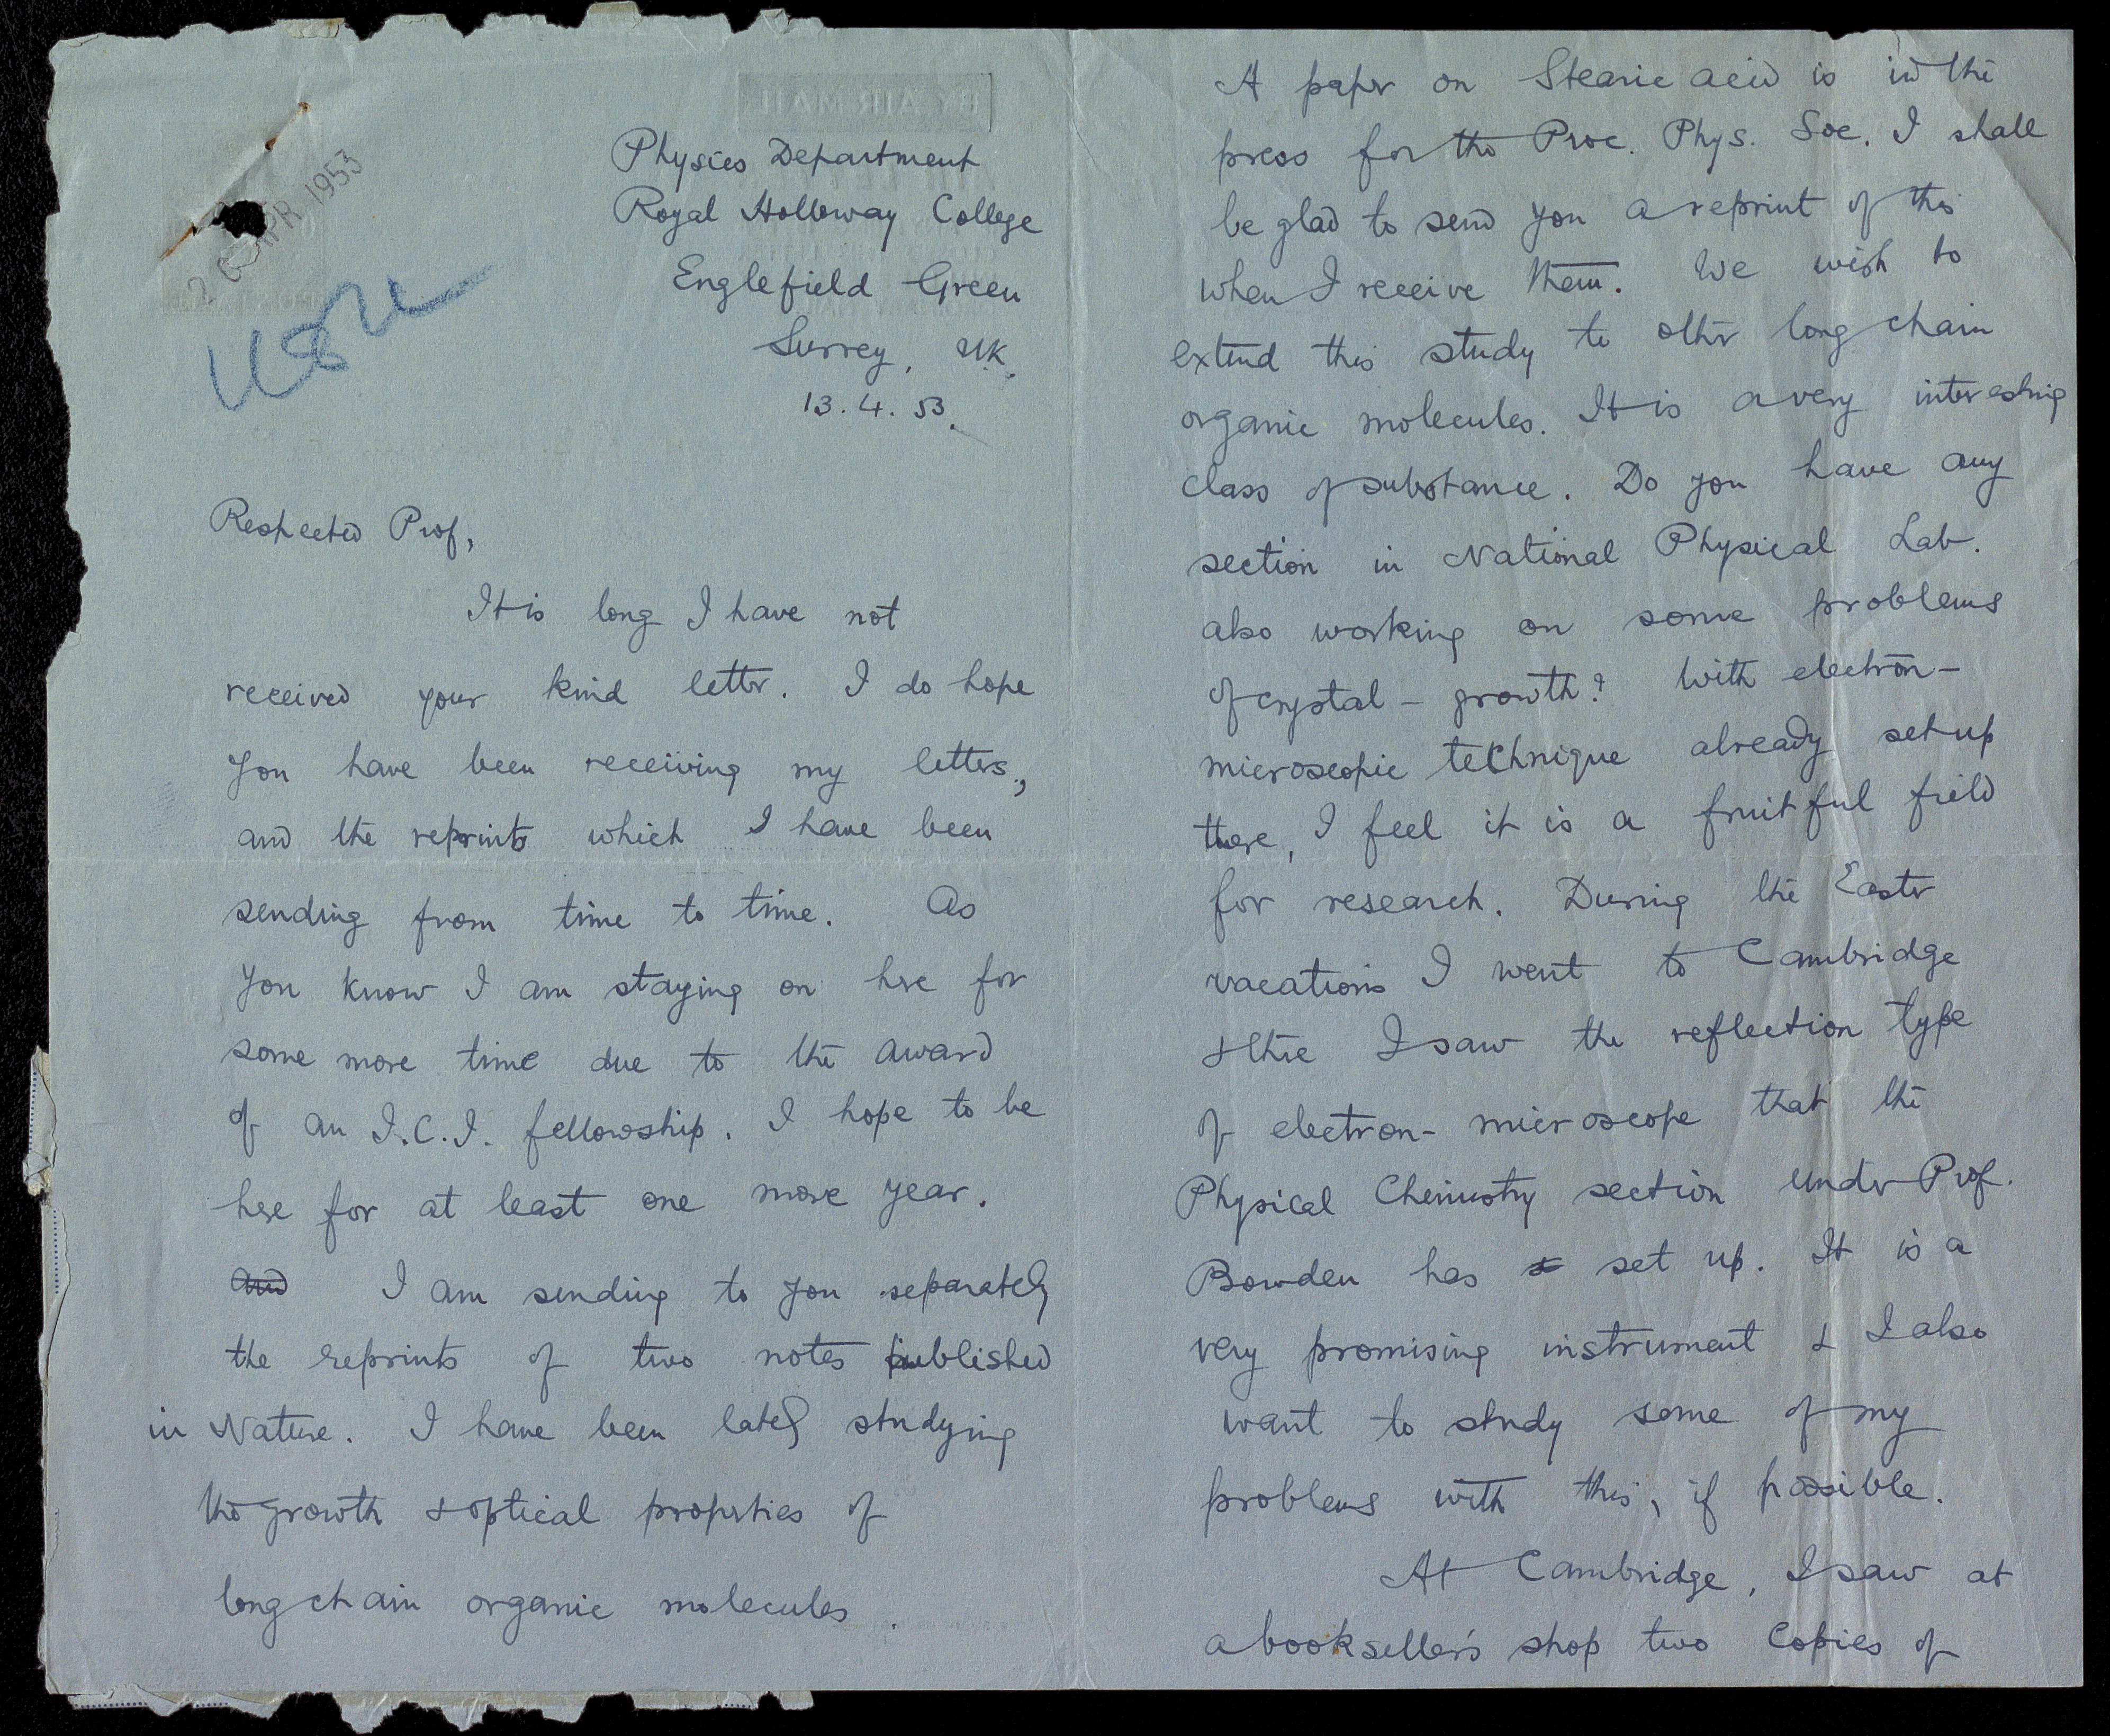 BY AIR MAIL
2 APR 1953
Physics Department
Royal Holloway College
Englefield Green
Surrey, UK.
13.4.53.
Respected Prof,
It is long I have not
received your kind letter. I do hope
you have been receiving my letters,
and the reprints which I have been
sending from time to time. As
you know I am staying on here for
some more time due to the award
of an I.C.I. fellowship. I hope to be
here for at least one more year.
and I am sending to you separately
the reprints of two notes published
in Nature. I have been lately studying
the growth & optical properties of
long chain organic molecules.
A paper on Stearic acid is in the
press for the Proc. Phys. Soc. I shall
be glad to send you a reprint of this
when I receive them. We wish to
extend this study to other long chain
organic molecules. It is a very interesting
class of substance. Do you have any
section in National Physical Lab.
also working on some problems
of crystal-growth? With electron-
microscopic technique already set up
there, I feel it is a fruitful field
for research. During the Easter
vacations I went to Cambridge
& there I saw the reflection type
of electron-microscope that the
Physical Chemistry section under Prof.
Bowden has set up. It is a
very promising instrument & I also
want to study some of my
problems with this, if possible.
At Cambridge, I saw at
a bookseller's shop two copies of